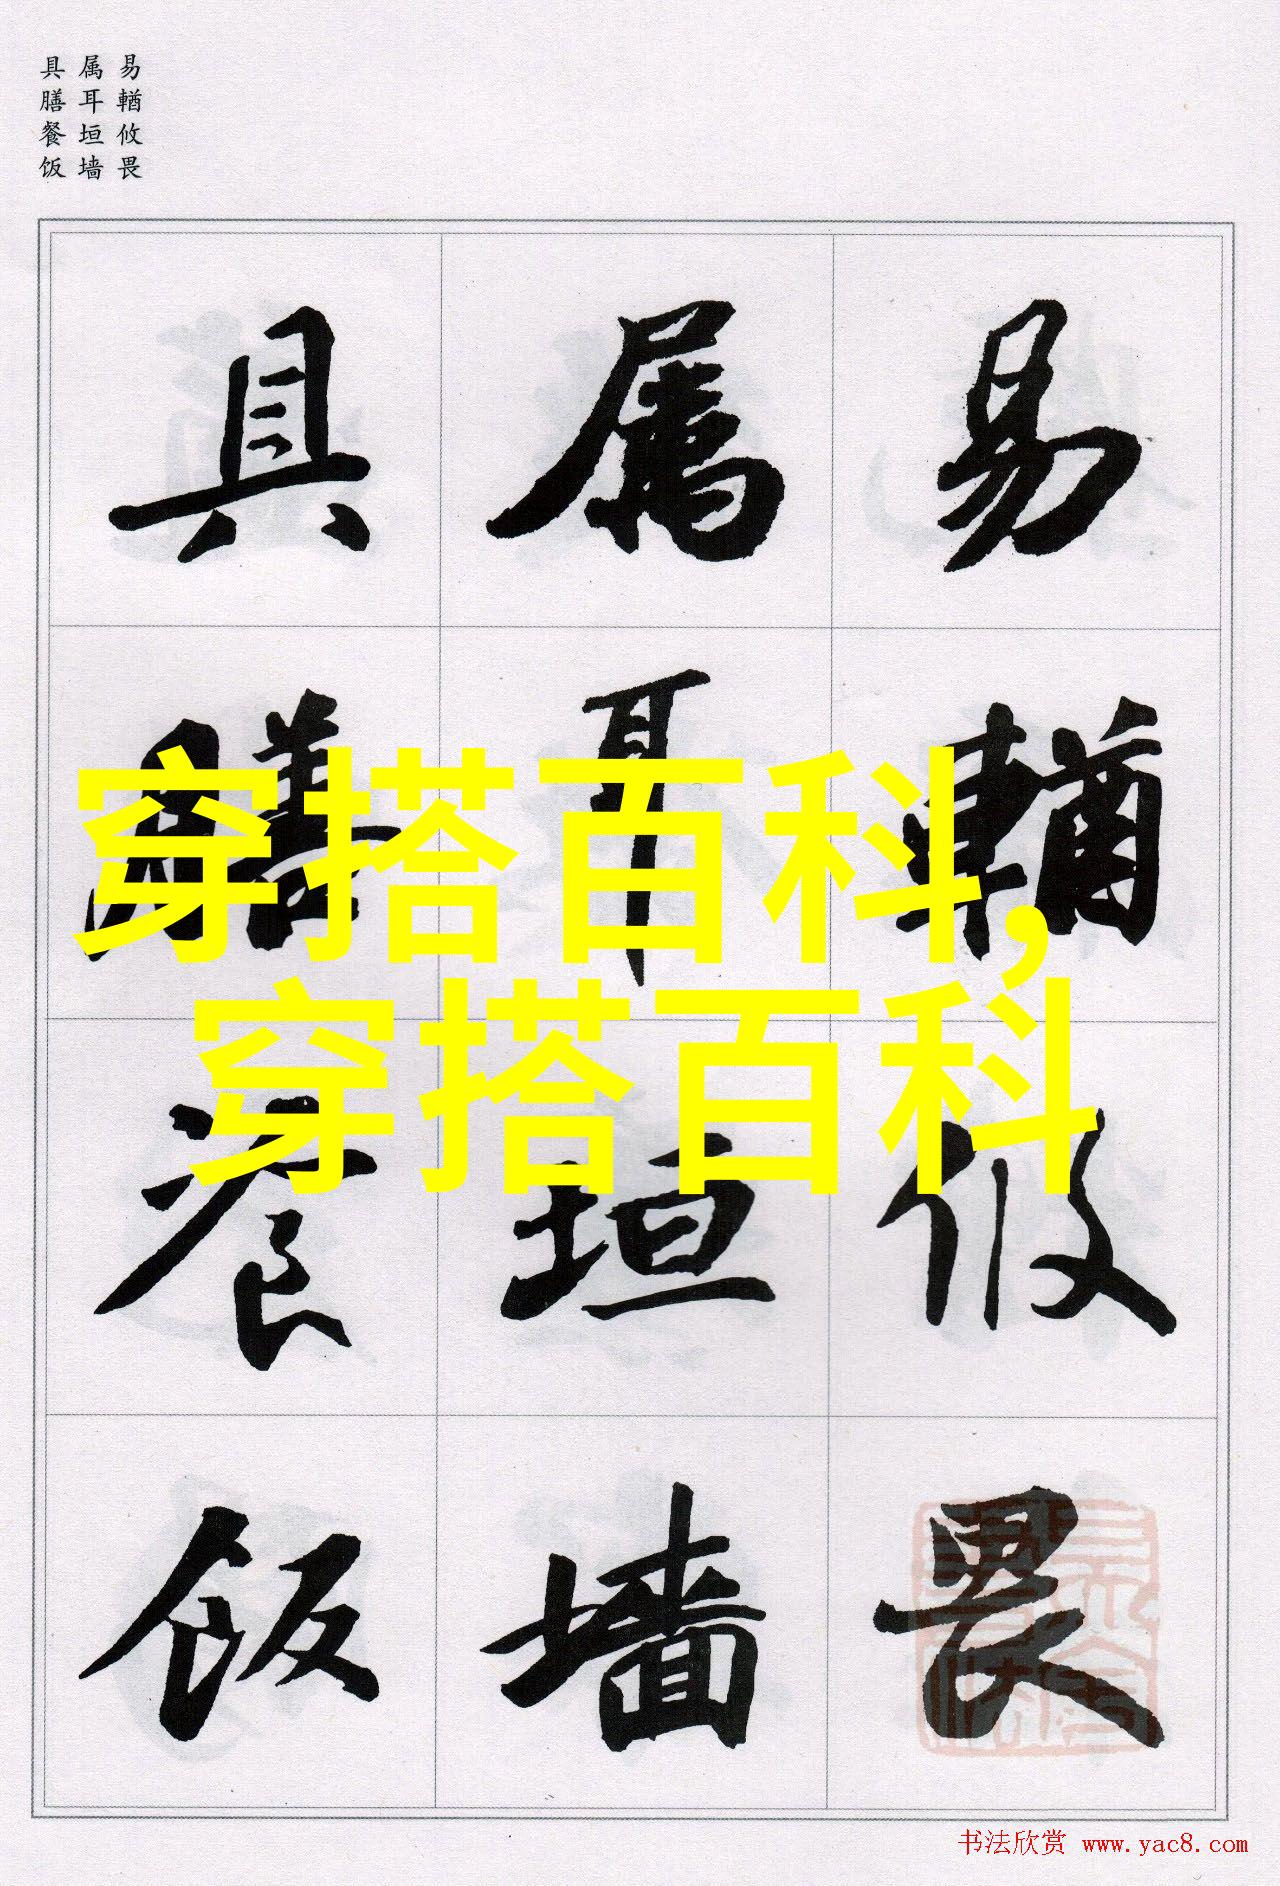 具 属 易
膳 耳 輶
餐 垣 攸
饭 墙 畏
具 属 易
膳 耳 輶
飡 垣 攸
饭 墙 畏
穿搭百科,
穿搭百科
书法欣赏 www.yac8.com